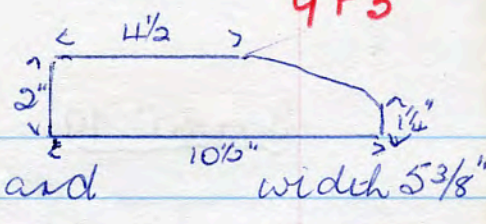 4½
2"
1¼"
10½"
and width 5⅜"